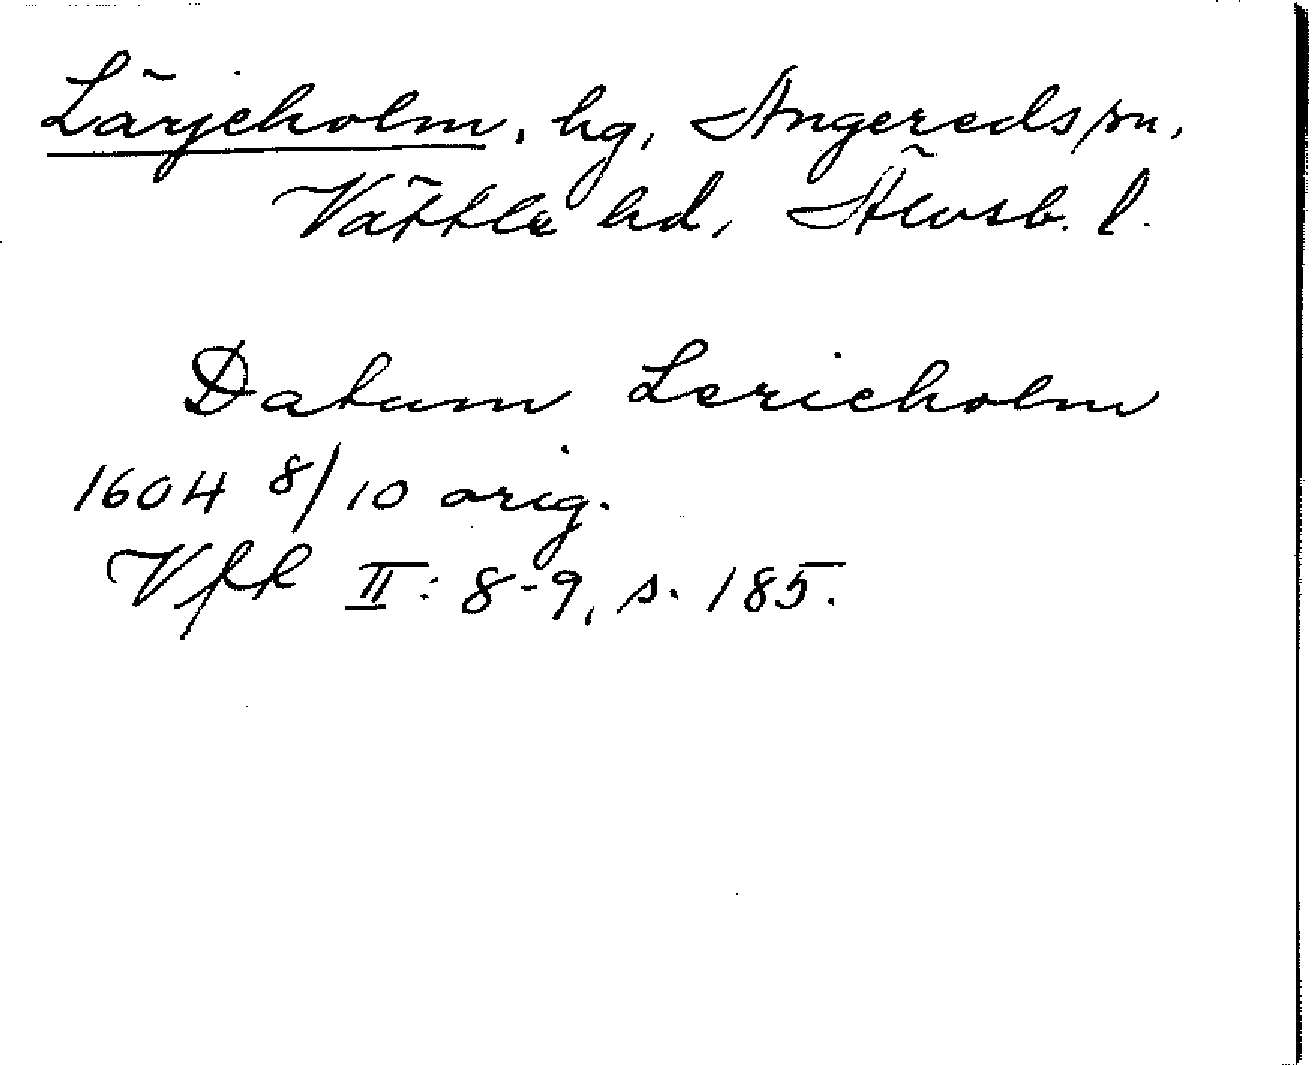 Lärjeholm, hg, Angereds sn,
Vättle hd, Älvsb. l.
Datum Lerieholm
1604 8/10 orig.
VFR II: 8-9, s. 185.